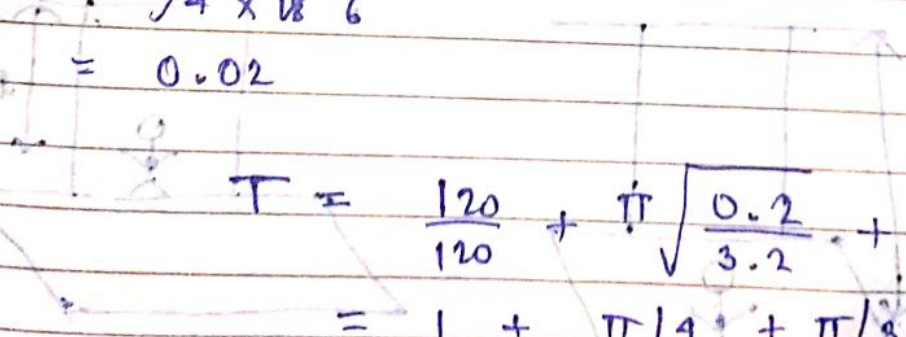 = 0.02
T = 120/120 + π√(0.2/3.2) +
= 1 + π/4 + π/